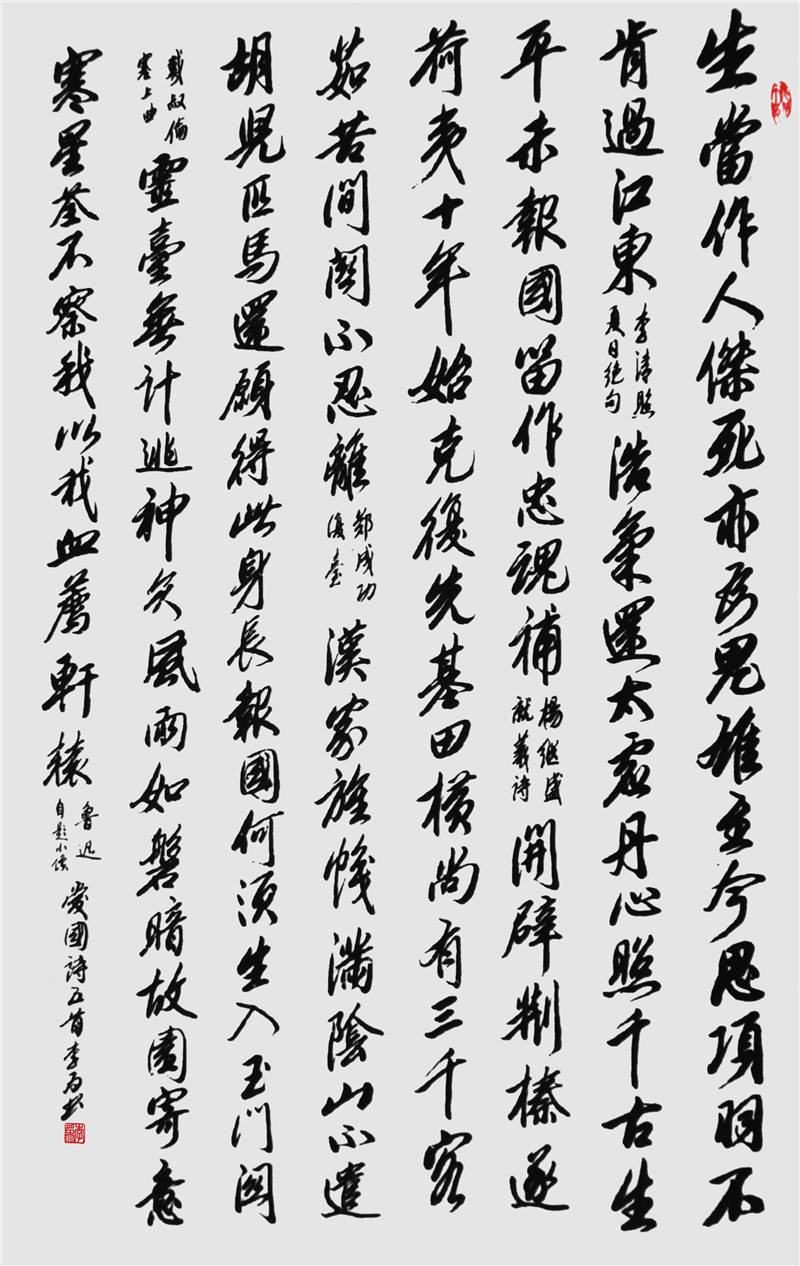 生當作人傑死亦為鬼雄至今思項羽不
肯過江東
李清照
夏日絕句
浩氣還太虛丹心照千古生
平未報國留作忠魂補
楊继盛
就義詩
開辟荆榛逐
荷夷十年始克復先基田橫尚有三千客
茹苦間關不忍離
鄭成功
復臺
漢家旌幟滿陰山不遣
胡兒匹馬還願得此身長報國何須生入玉門關
戴叔倫
塞上曲
靈臺無計逃神矢風雨如磐暗故園寄意
寒星荃不察我以我血薦軒轅
魯迅
自题小像
愛國詩五首李